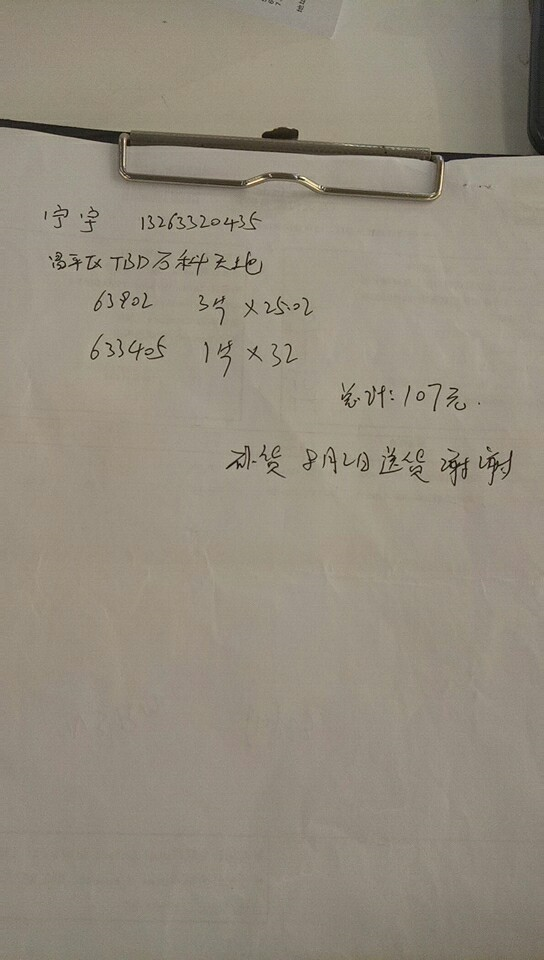 宁宇 13263320435
昌平区TBD万科天地
63902 3件×25.02
633405 1件×32
总计:107元.
补货 8月2日送货 谢谢